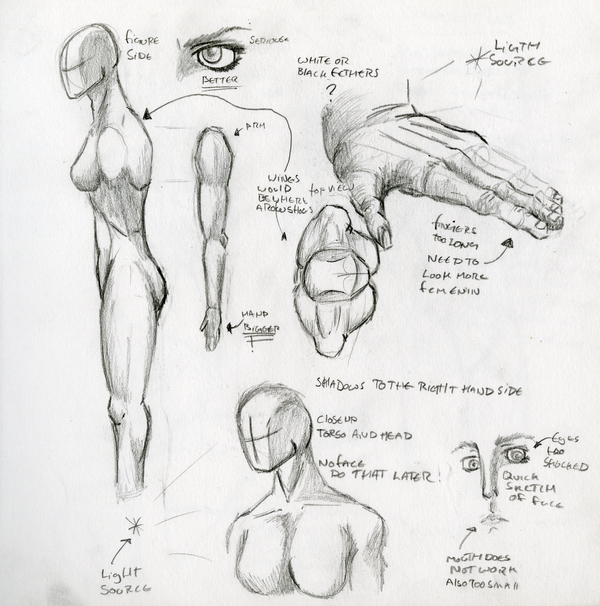 FIGURE
SIDE
SERIOUSER
BETTER
WHITE OR
BLACK FETHERS
?
LIGTH
SOURCE
ARM
WINGS
WOULD
BE WHERE
AROW SHOGS
TOP VIEW
FINGERS
TOO LONG
NEED TO
LOOK MORE
FEMENIN
HAND
BIGGER
SHADOWS TO THE RIGHT HAND SIDE
CLOSEUP
TORSO AND HEAD
NO FACE
DO THAT LATER!
EYES
TOO
SHOCKED
QUICK
SKETCH
OF FACE
LIGHT
SOURCE
MOUTH DOES
NOT WORK
ALSO TOO SMALL